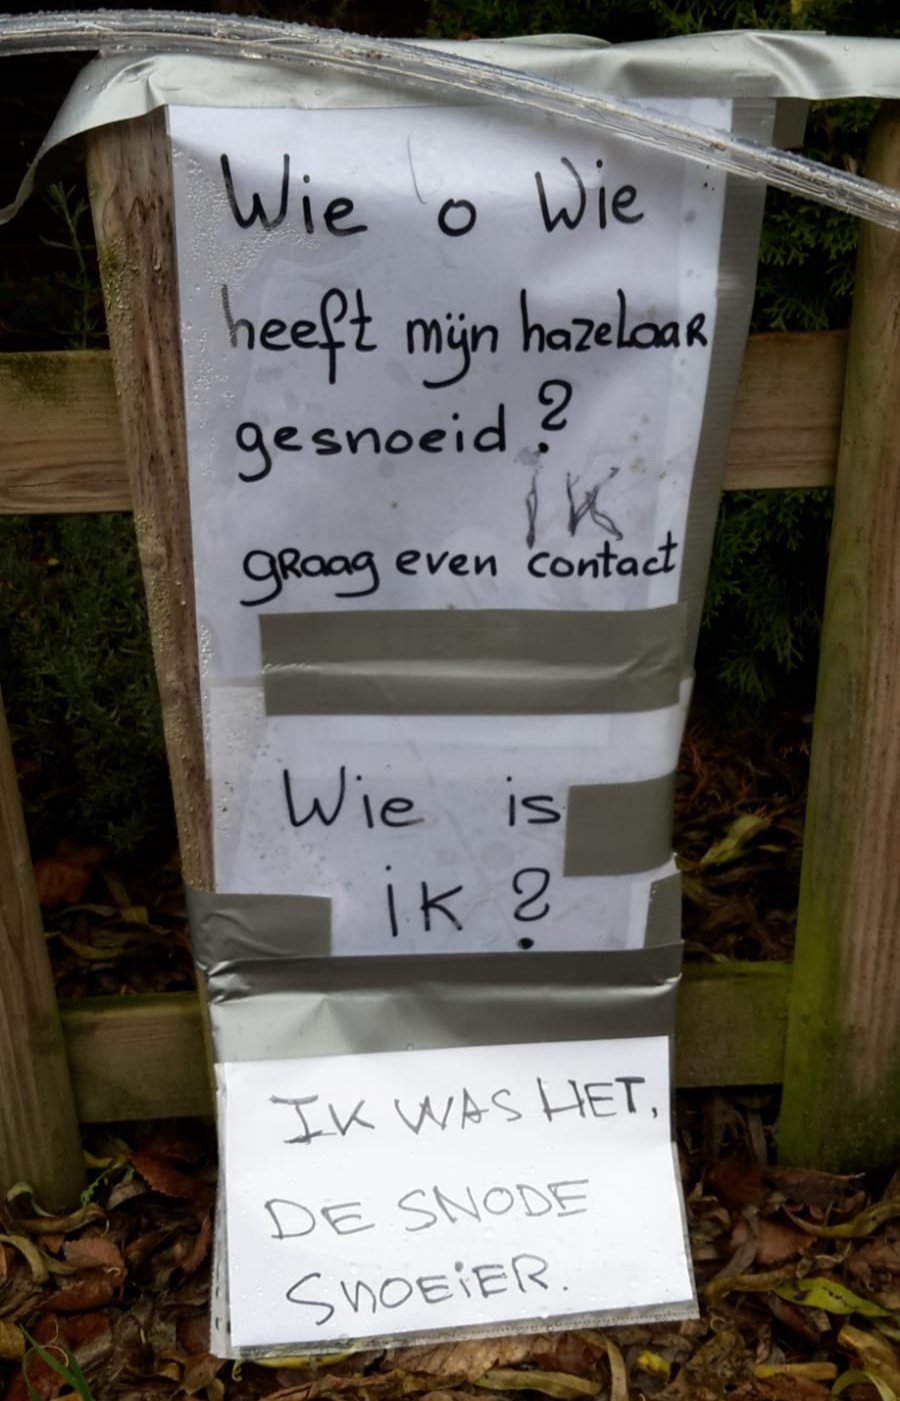 Wie o Wie
heeft mijn hazelaar
gesnoeid?
IK
graag even contact
Wie is
ik?
IK WAS HET,
DE SNODE
SNOEIER.